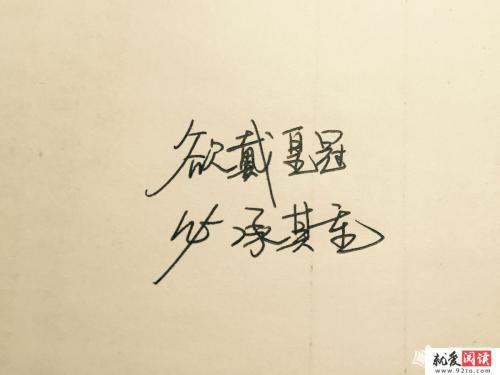 欲戴皇冠
必承其重
就爱阅读
www.92to.com